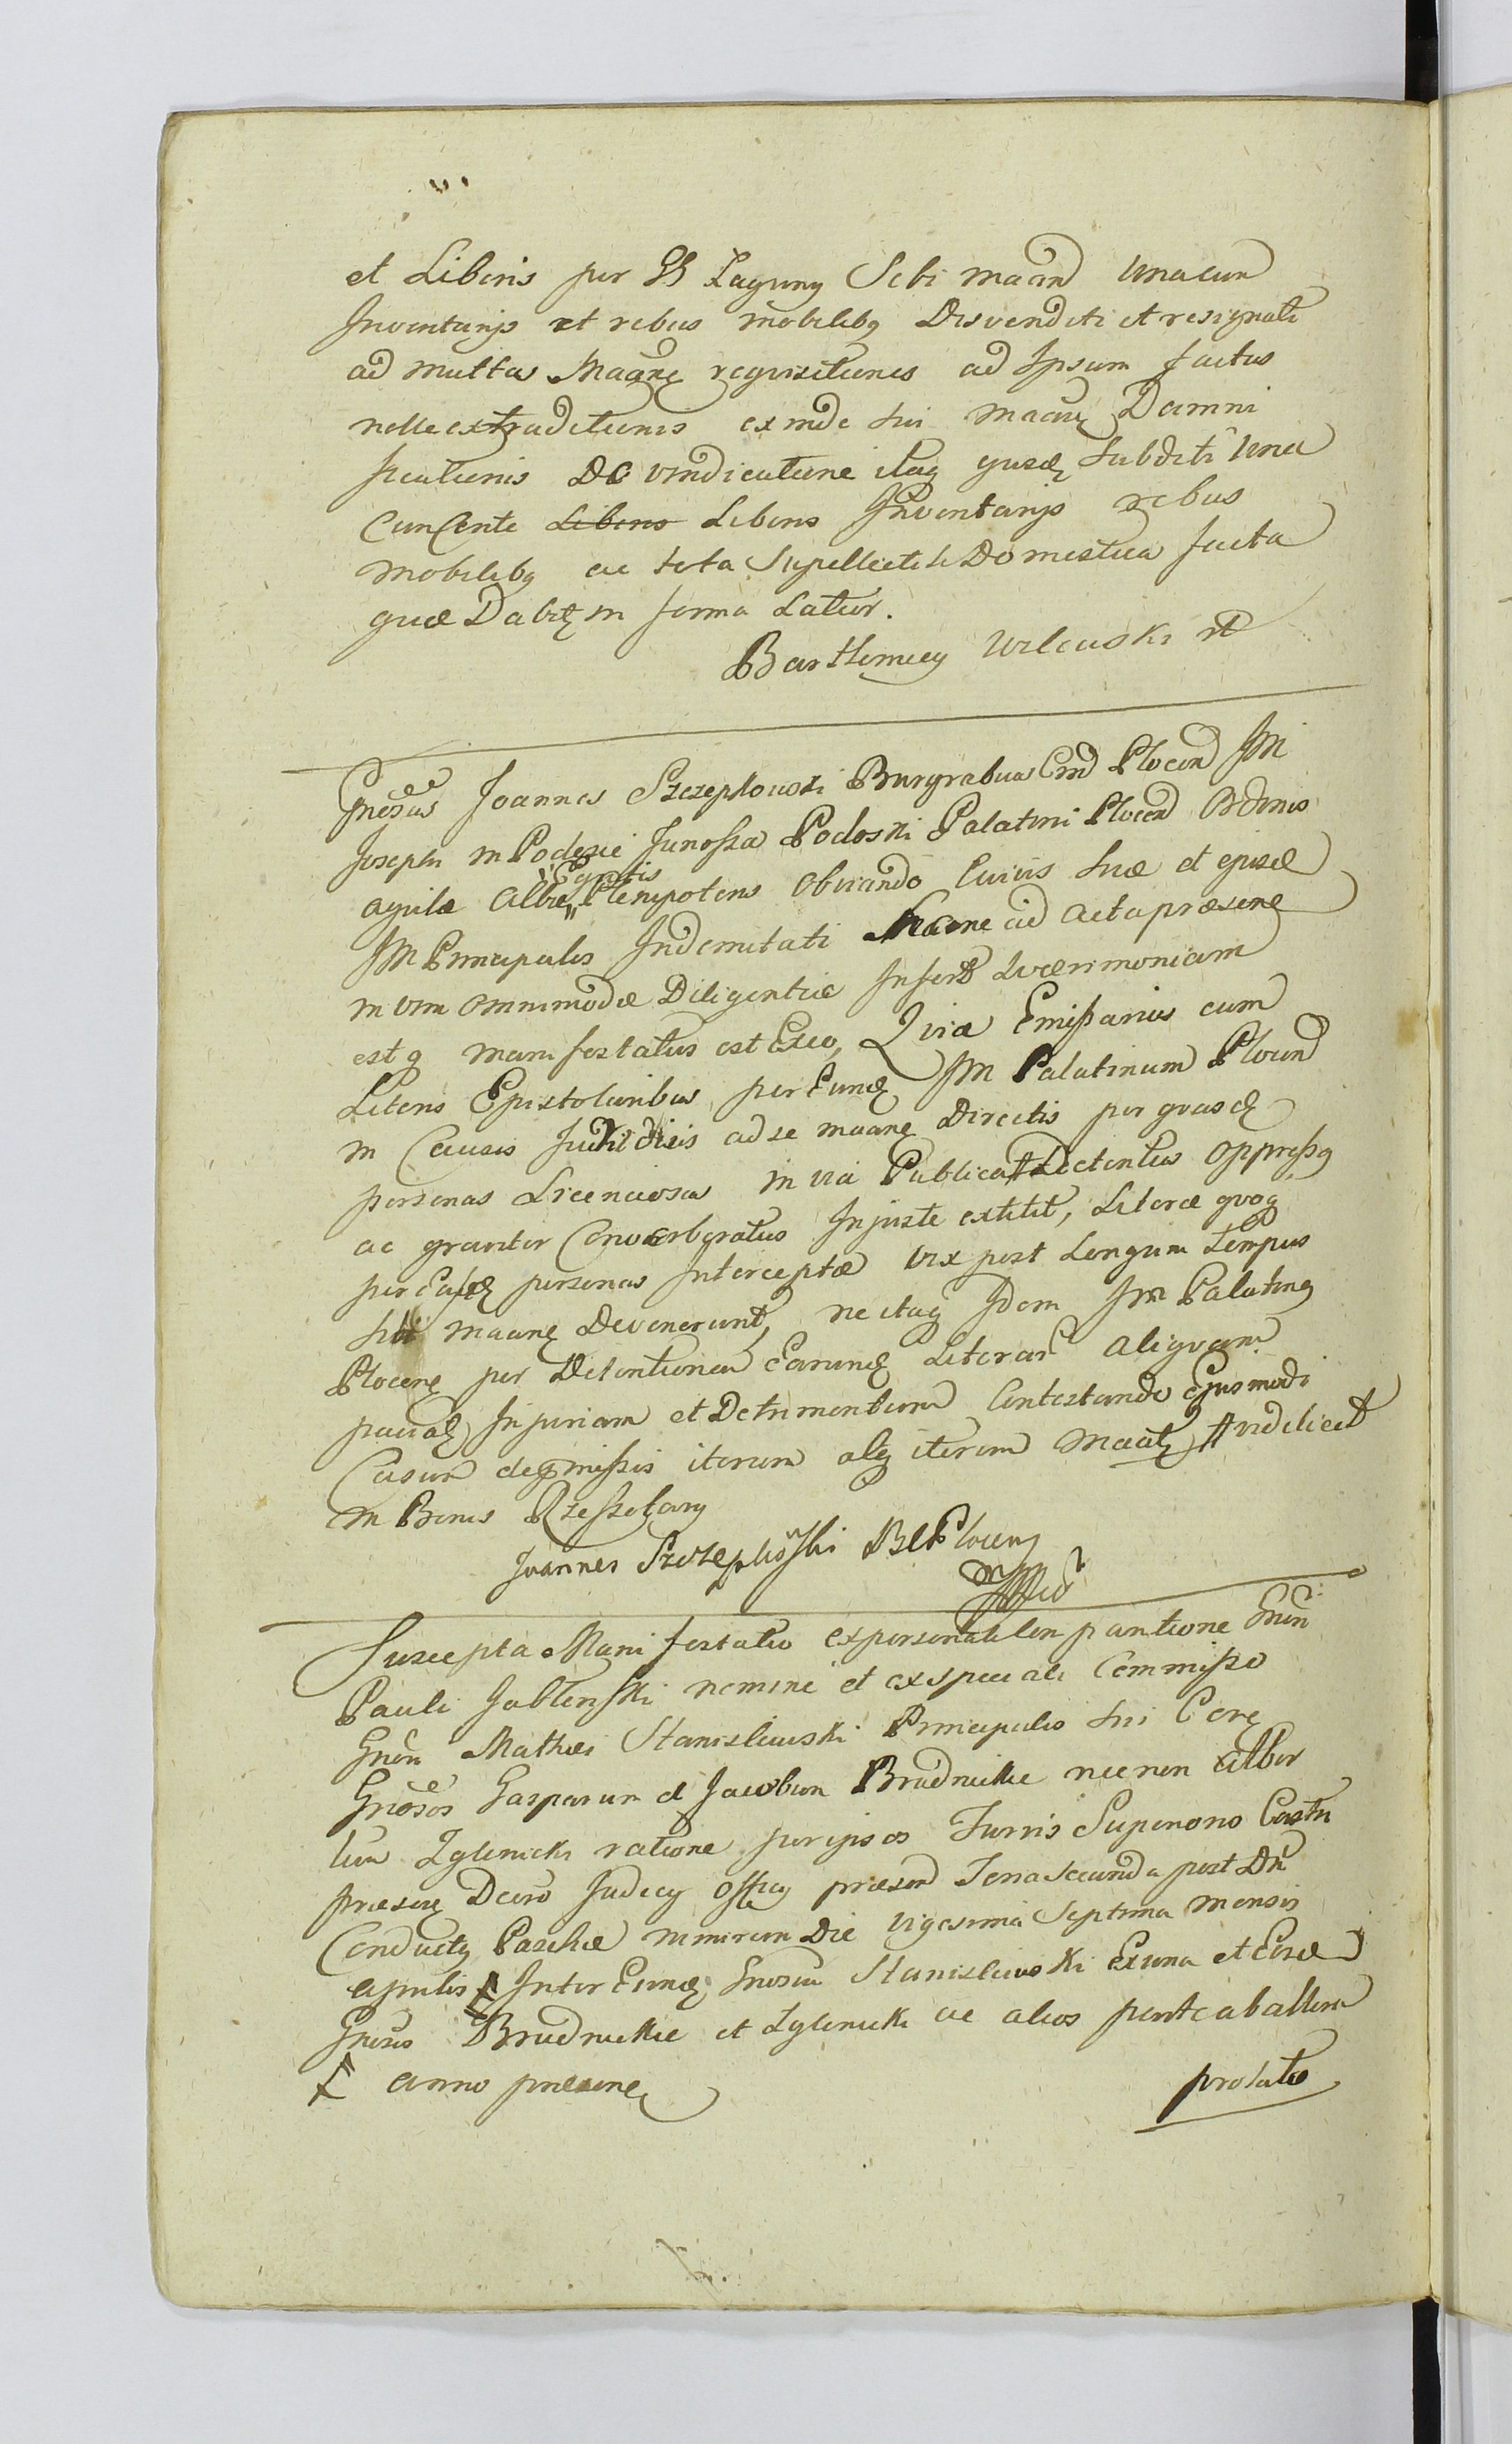 et Liberis per Zaguny Sibi maan Unacum
Inventarijs et rebus mobilibq Disvenditi et resignati
ad multas Maane requisitiones ad Ipsum factas
nolle extraditionis exinde sui maane Damni
ficationis De vindicatione itaq ejusd Subditi Una
cum Conte Liberis Inventarijs rebus
mobilibq ac tota Supellectili Domestica facta
quæ Dabit in forma Latior.
Bartłomiey Wilcuski
Gnosus Joannes Szczepkowski Burgrabius Cas Plocen IM
Josephi in Podosie Junosza Podoski Palatini Plocen Ordinis
Aquilæ Albæ Equitis Plenipotens obviando Curiis suæ et ejusd
IM Principalis Indemnitati Maane ad Acta præsene
in vim omnimodæ Diligentiæ Infert Quærimoniam
estq manifestatus est Eteo, Quia Emissarius cum
Literis Epistolaribus per Eund IM Palatinum Plocen
in Causis Juridicis ad se maane Directis per quasd
personas Licenciosas in via Publica Detentus oppressq
ac graviter Converberatus Injuste extitit, Literæ quoq
per Easd personas Interceptæ vix post Longum tempus
sibi maane Devenerunt, ne itaq Idem IM Palatinq
Plocene per Detentionem Earund Literar aliquam
patiat Injuriam et Detrimentum Contestando Ejusmodi
Casum de præmissis iterum atq iterum Maat videlicet
in Bonis
Joannes Szczepkowski BCPlocen
mpp
Suscepta Manifestatio ex personali Comparitione Gnen
Pauli Jabłonski nomine et ex speciali Commisso
Gnen Mathæi Stanisławski Principalis sui Cone
Gnosos Gasparum et Jacobum Brudnickie necnon Alber
tum Zglenicki ratione per ipsos Turris Superioris Castri
præsene Decro Judicy Officy præsen Feria Secunda post Dn
Conductq Paschæ nimirum Die Vigesima Septima mensis
aprilis Inter Eund Gnosum Stanisławski Exuna et Eosd
Gnosos Brudnickie et Zglenicki ac alios parte ab altera
anno præsene prolato